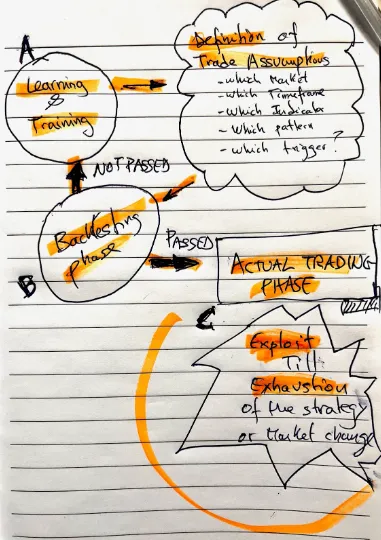 A
Learning
&
Training
Definition of
Trade Assumptions
- which Market
- which Timeframe
- which Indicator
- which pattern
- which trigger?
NOT PASSED
Backtesting
phase
B
PASSED
ACTUAL TRADING
PHASE
C
Exploit
Till
Exhaustion
of the strategy
or Market change